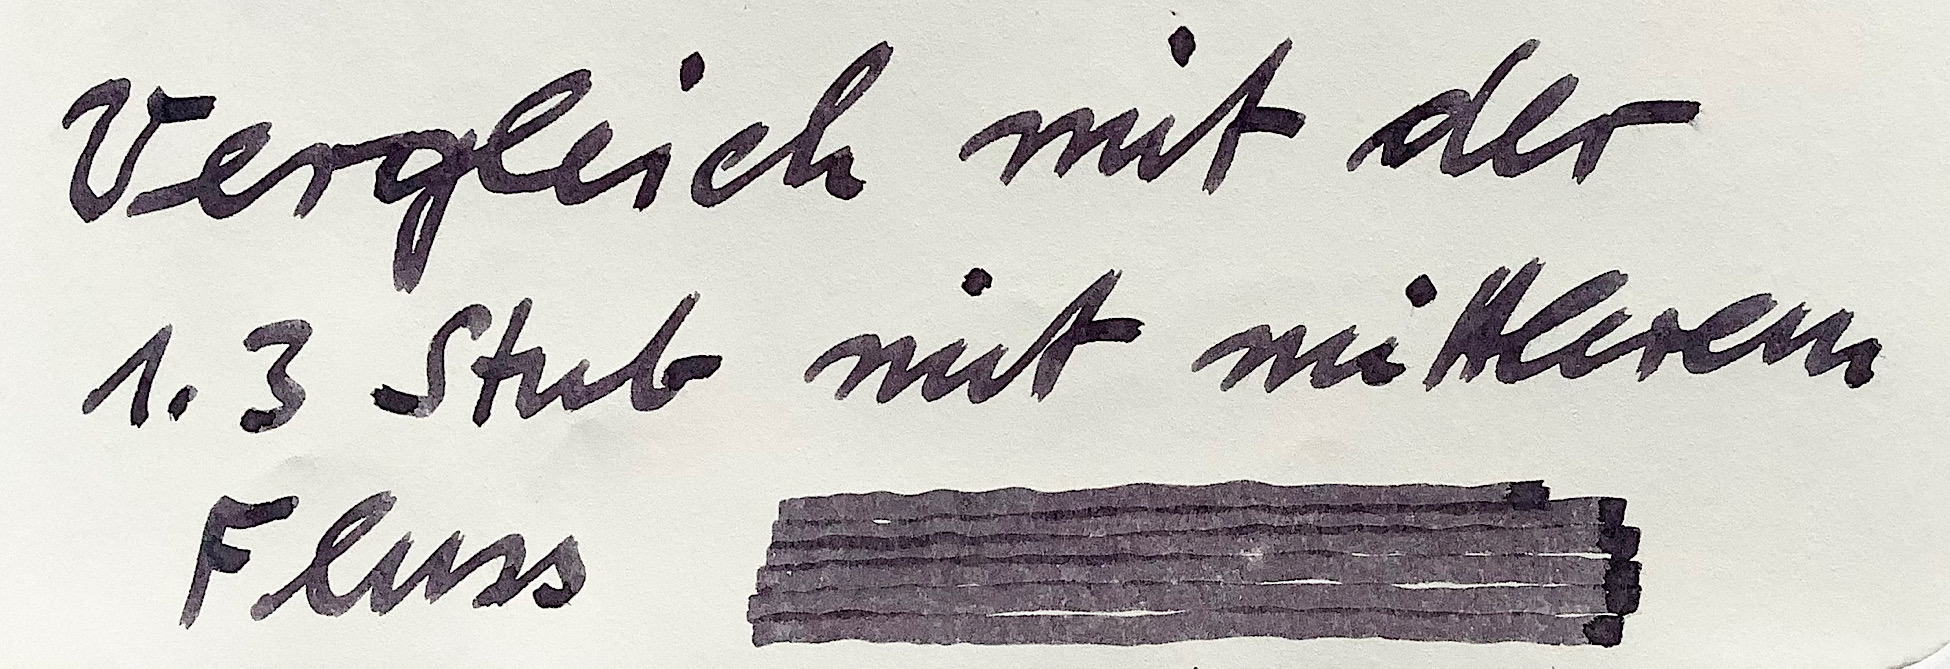 Vergleich mit der
1.3 Stub mit mittlerem
Fluss